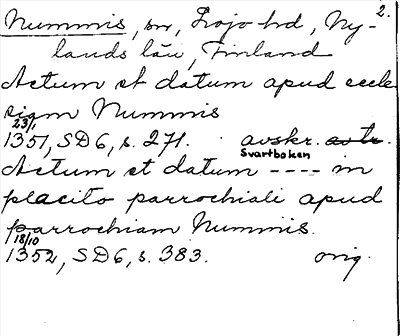 2.
Nummis, sn, Lojo hd, Ny-
lands län, Finland
Actum et datum apud eccle
siam Nummis
23/1
1351, SD6, s. 271. avskr. avtr.
Svartboken
Actum et datum ---- in
placito parrochiali apud
parrochiam Nummis.
18/10
1352, SD6, s. 383. orig.